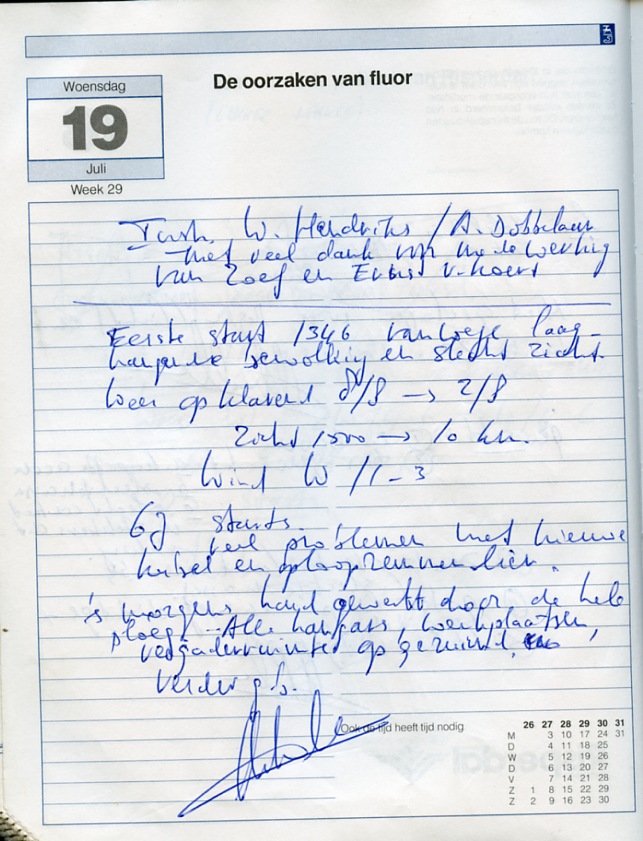 De oorzaken van fluor
Woensdag
19
Juli
Week 29
Instr. W. Hendriks / A. Dobbelaar
met veel dank voor medewerking
van Zoef en Ernst v. Koert
Eerste start 1346 vanwege laag-
hangende bewolking en slecht zicht.
Weer opklarend 8/8 → 2/8
Zicht 1500 → 10 km.
Wind W / 1-3
starts.
veel problemen met nieuwe
kabel en
's morgens hard gewerkt door de hele
ploeg. Alle hangars, werkplaatsen,
vergaderruimte opgeruimd,
Verder g.b.
Ook de tijd heeft tijd nodig
26 27 28 29 30 31
M 3 10 17 24 31
D 4 11 18 25
W 5 12 19 26
D 6 13 20 27
V 7 14 21 28
Z 1 8 15 22 29
Z 2 9 16 23 30